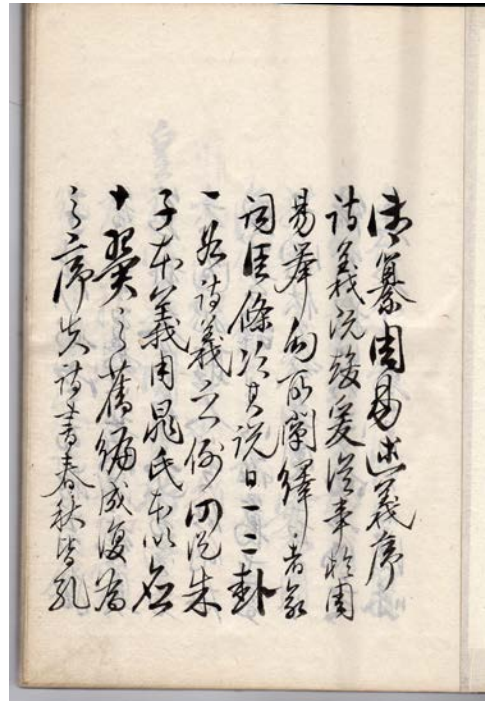 御纂周易述義序
詩義既竣爰從事於周
易舉向所闡繹者
詞臣條次其說日一二卦
一如詩義之例仍從朱
子本義用晁氏本以
十翼之舊編成復為
之序夫詩書春秋皆孔